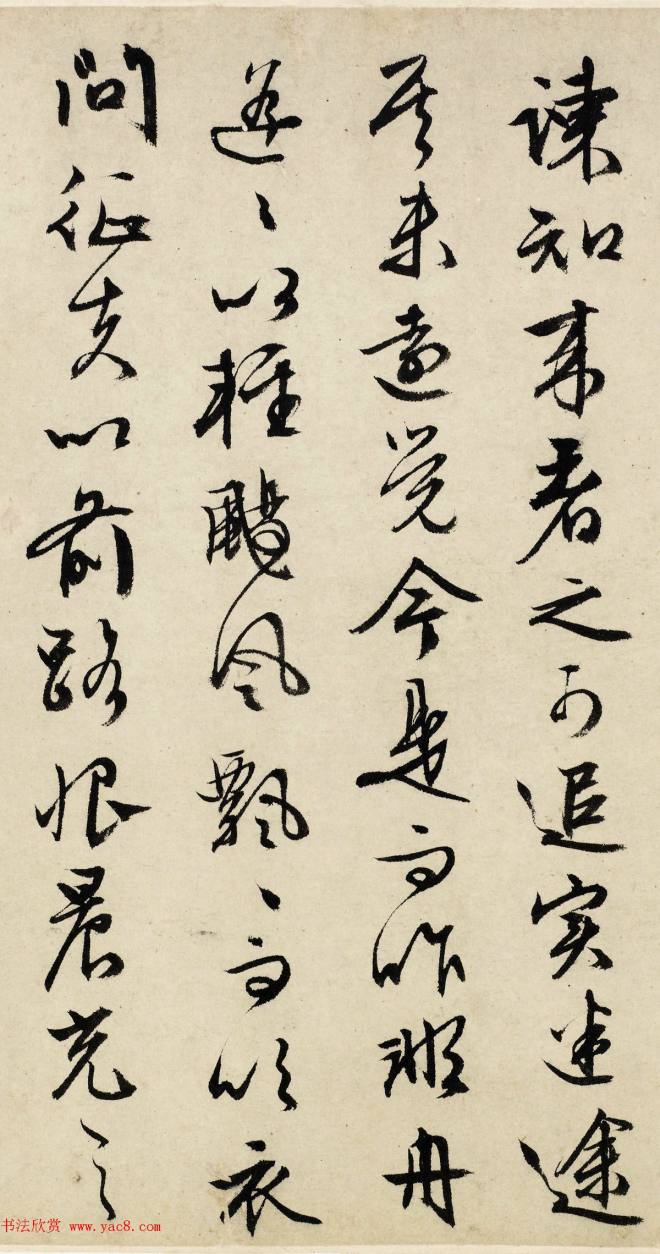 諫知来者之可追实迷途
其未遠觉今是而昨非舟
遥〻以輕颺風飄〻而吹衣
問征夫以前路恨晨光之
书法欣赏 www.yac8.com